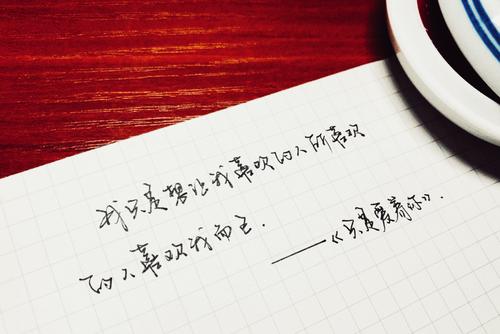 我只是想让我喜欢的人所喜欢
的人喜欢我而已.
——《只是爱着你》.